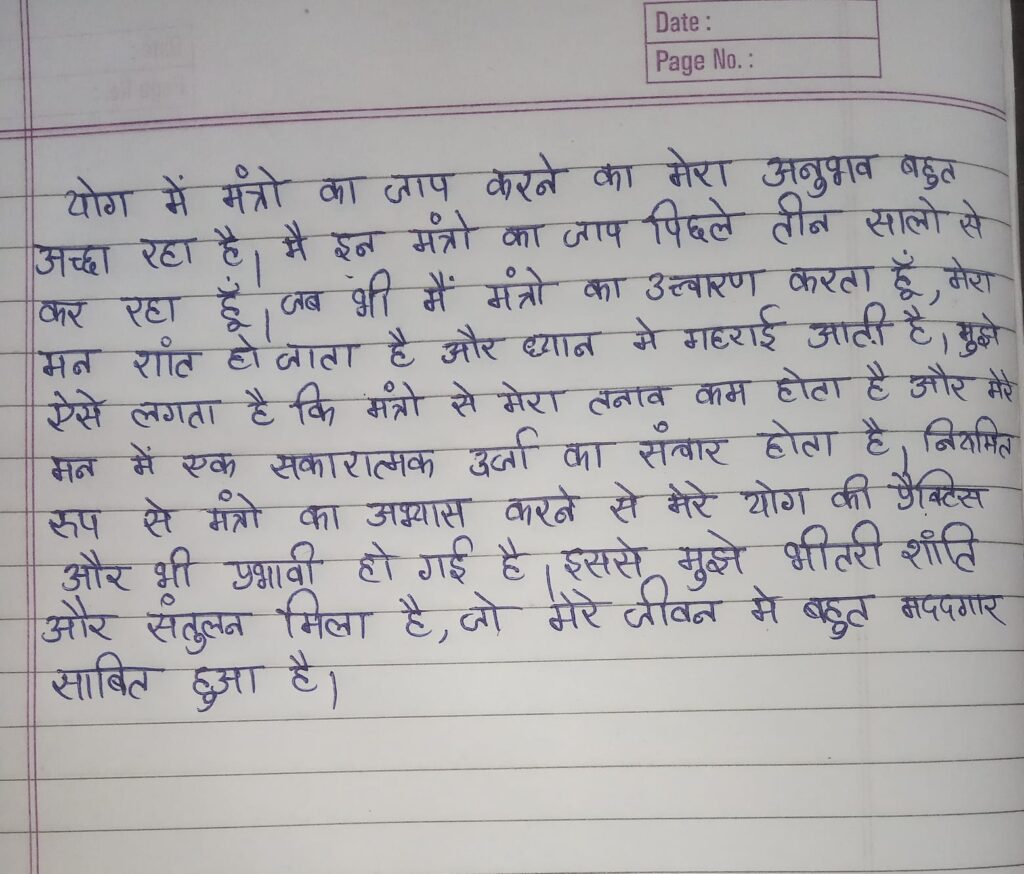 Date :
Page No. :
योग में मंत्रो का जाप करने का मेरा अनुभव बहुत
अच्छा रहा है। मै इन मंत्रो का जाप पिछले तीन सालो से
कर रहा हूँ। जब भी मैं मंत्रो का उच्चारण करता हूँ, मेरा
मन शांत हो जाता है और ध्यान मे गहराई आती है। मुझे
ऐसे लगता है कि मंत्रो से मेरा तनाव कम होता है और मेरे
मन में एक सकारात्मक उर्जा का संचार होता है। नियमित
रूप से मंत्रो का अभ्यास करने से मेरे योग की प्रैक्टिस
और भी प्रभावी हो गई है। इससे मुझे भीतरी शांति
और संतुलन मिला है, जो मेरे जीवन मे बहुत मददगार
साबित हुआ है।